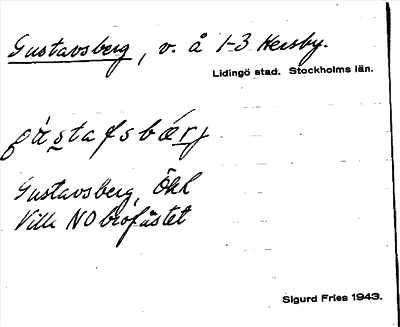 Gustavsberg, v. å 1-3 Hersby.
Lidingö stad. Stockholms län.
gùstafsbærj
Gustavsberg, Ökk
Villa NO brofästet
Sigurd Fries 1943.